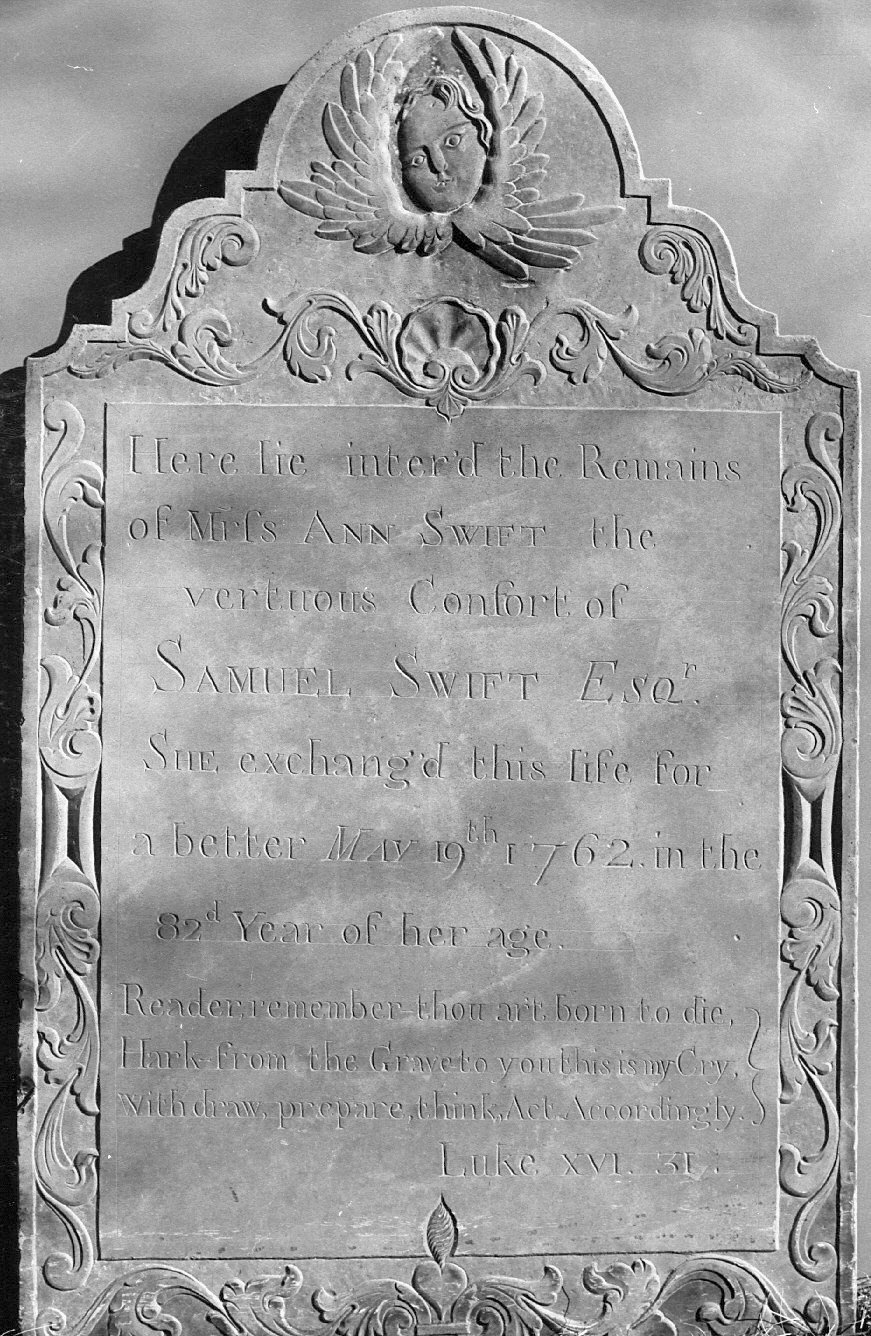 Here lie inter'd the Remains
of Mrſs ANN SWIFT the
vertuous Conſort of
SAMUEL SWIFT ESQr.
SHE exchang'd this life for
a better MAY 19th 1762. in the
82d Year of her age.
Reader, remember thou art born to die,
Hark from the Grave to you this is my Cry,
withdraw, prepare, think, Act Accordingly.
Luke XVI. 31.